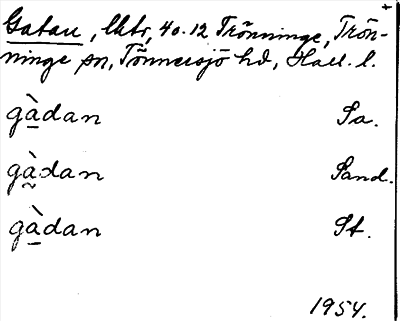 Gatan, lktr, 40.12 Trönninge, Trön-
ninge sn, Tönnersjö hd, Hall. l.
gàdan Sa.
gàdan Sand.
gàdan St.
1954.